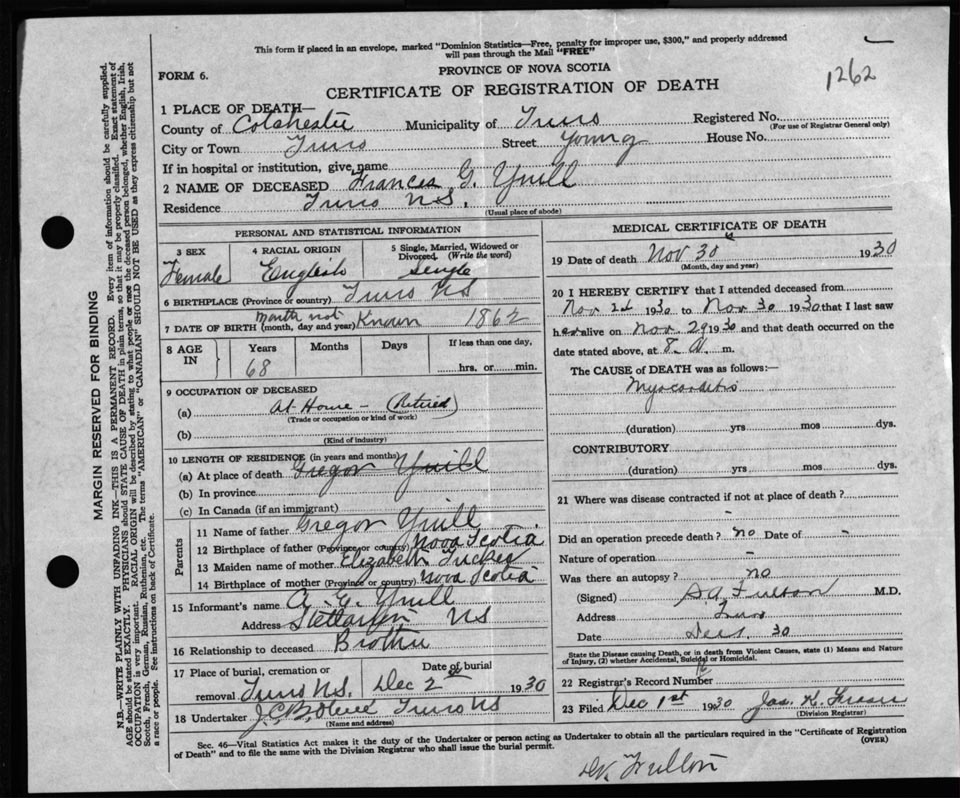 This form if placed in an envelope, marked "Dominion Statistics—Free, penalty for improper use, $300," and properly addressed
will pass through the Mail "FREE"
FORM 6.
PROVINCE OF NOVA SCOTIA
1262
CERTIFICATE OF REGISTRATION OF DEATH
1 PLACE OF DEATH—
County of Colchester Municipality of Truro Registered No.
(For use of Registrar General only)
City or Town Truro Street Young House No.
If in hospital or institution, give name
2 NAME OF DECEASED Frances G. Yuill
Residence Truro N.S.
(Usual place of abode)
PERSONAL AND STATISTICAL INFORMATION
3 SEX
Female
4 RACIAL ORIGIN
English
5 Single, Married, Widowed or
Divorced. (Write the word)
Single
6 BIRTHPLACE (Province or country) Truro NS
7 DATE OF BIRTH (month, day and year) Month not Known 1862
8 AGE IN
Years Months Days If less than one day,
68 hrs. or min.
9 OCCUPATION OF DECEASED
(a) At Home - (Retired)
(Trade or occupation or kind of work)
(b)
(Kind of industry)
10 LENGTH OF RESIDENCE (in years and months)
(a) At place of death Gregor Yuill
(b) In province
(c) In Canada (if an immigrant)
Parents
11 Name of father Gregor Yuill
12 Birthplace of father (Province or country) Nova Scotia
13 Maiden name of mother Elizabeth
14 Birthplace of mother (Province or country) Nova Scotia
15 Informant's name Yuill
Address Stellarton NS
16 Relationship to deceased Brother
17 Place of burial, cremation or
removal Truro N.S.
Date of burial
Dec 2nd 1930
18 Undertaker Truro NS
(Name and address)
MEDICAL CERTIFICATE OF DEATH
19 Date of death Nov 30 1930
(Month, day and year)
20 I HEREBY CERTIFY that I attended deceased from
Nov 2d 1930 to Nov 30 1930 that I last saw
her alive on Nov 29 1930 and that death occurred on the
date stated above, at 8 A. m.
The CAUSE of DEATH was as follows:—
Myocarditis
(duration) yrs mos dys.
CONTRIBUTORY
(duration) yrs mos dys.
21 Where was disease contracted if not at place of death?
-
Did an operation precede death? no Date of -
Nature of operation -
Was there an autopsy? no
(Signed) Fulton M.D.
Address Truro
Date 30
State the Disease causing Death, or in death from Violent Causes, state (1) Means and Nature
of Injury, (2) whether Accidental, Suicidal or Homicidal.
22 Registrar's Record Number
23 Filed Dec 1st 1930 Jas. K.
(Division Registrar)
Sec. 46—Vital Statistics Act makes it the duty of the Undertaker or person acting as Undertaker to obtain all the particulars required in the "Certificate of Registration
of Death" and to file the same with the Division Registrar who shall issue the burial permit.
(OVER)
Dr. Fulton
MARGIN RESERVED FOR BINDING
N.B.—WRITE PLAINLY WITH UNFADING INK—THIS IS A PERMANENT RECORD. Every item of information should be carefully supplied.
AGE should be stated EXACTLY. PHYSICIANS should STATE CAUSE OF DEATH in plain terms, so that it may be properly classified. Exact statement of
OCCUPATION is very important. RACIAL ORIGIN will be described by stating to what people or race the deceased person belonged, whether English, Irish,
Scotch, French, German, Russian, Ruthenian, etc. The terms "AMERICAN" or "CANADIAN" SHOULD NOT BE USED as they express citizenship but not
a race or people. See instructions on back of Certificate.